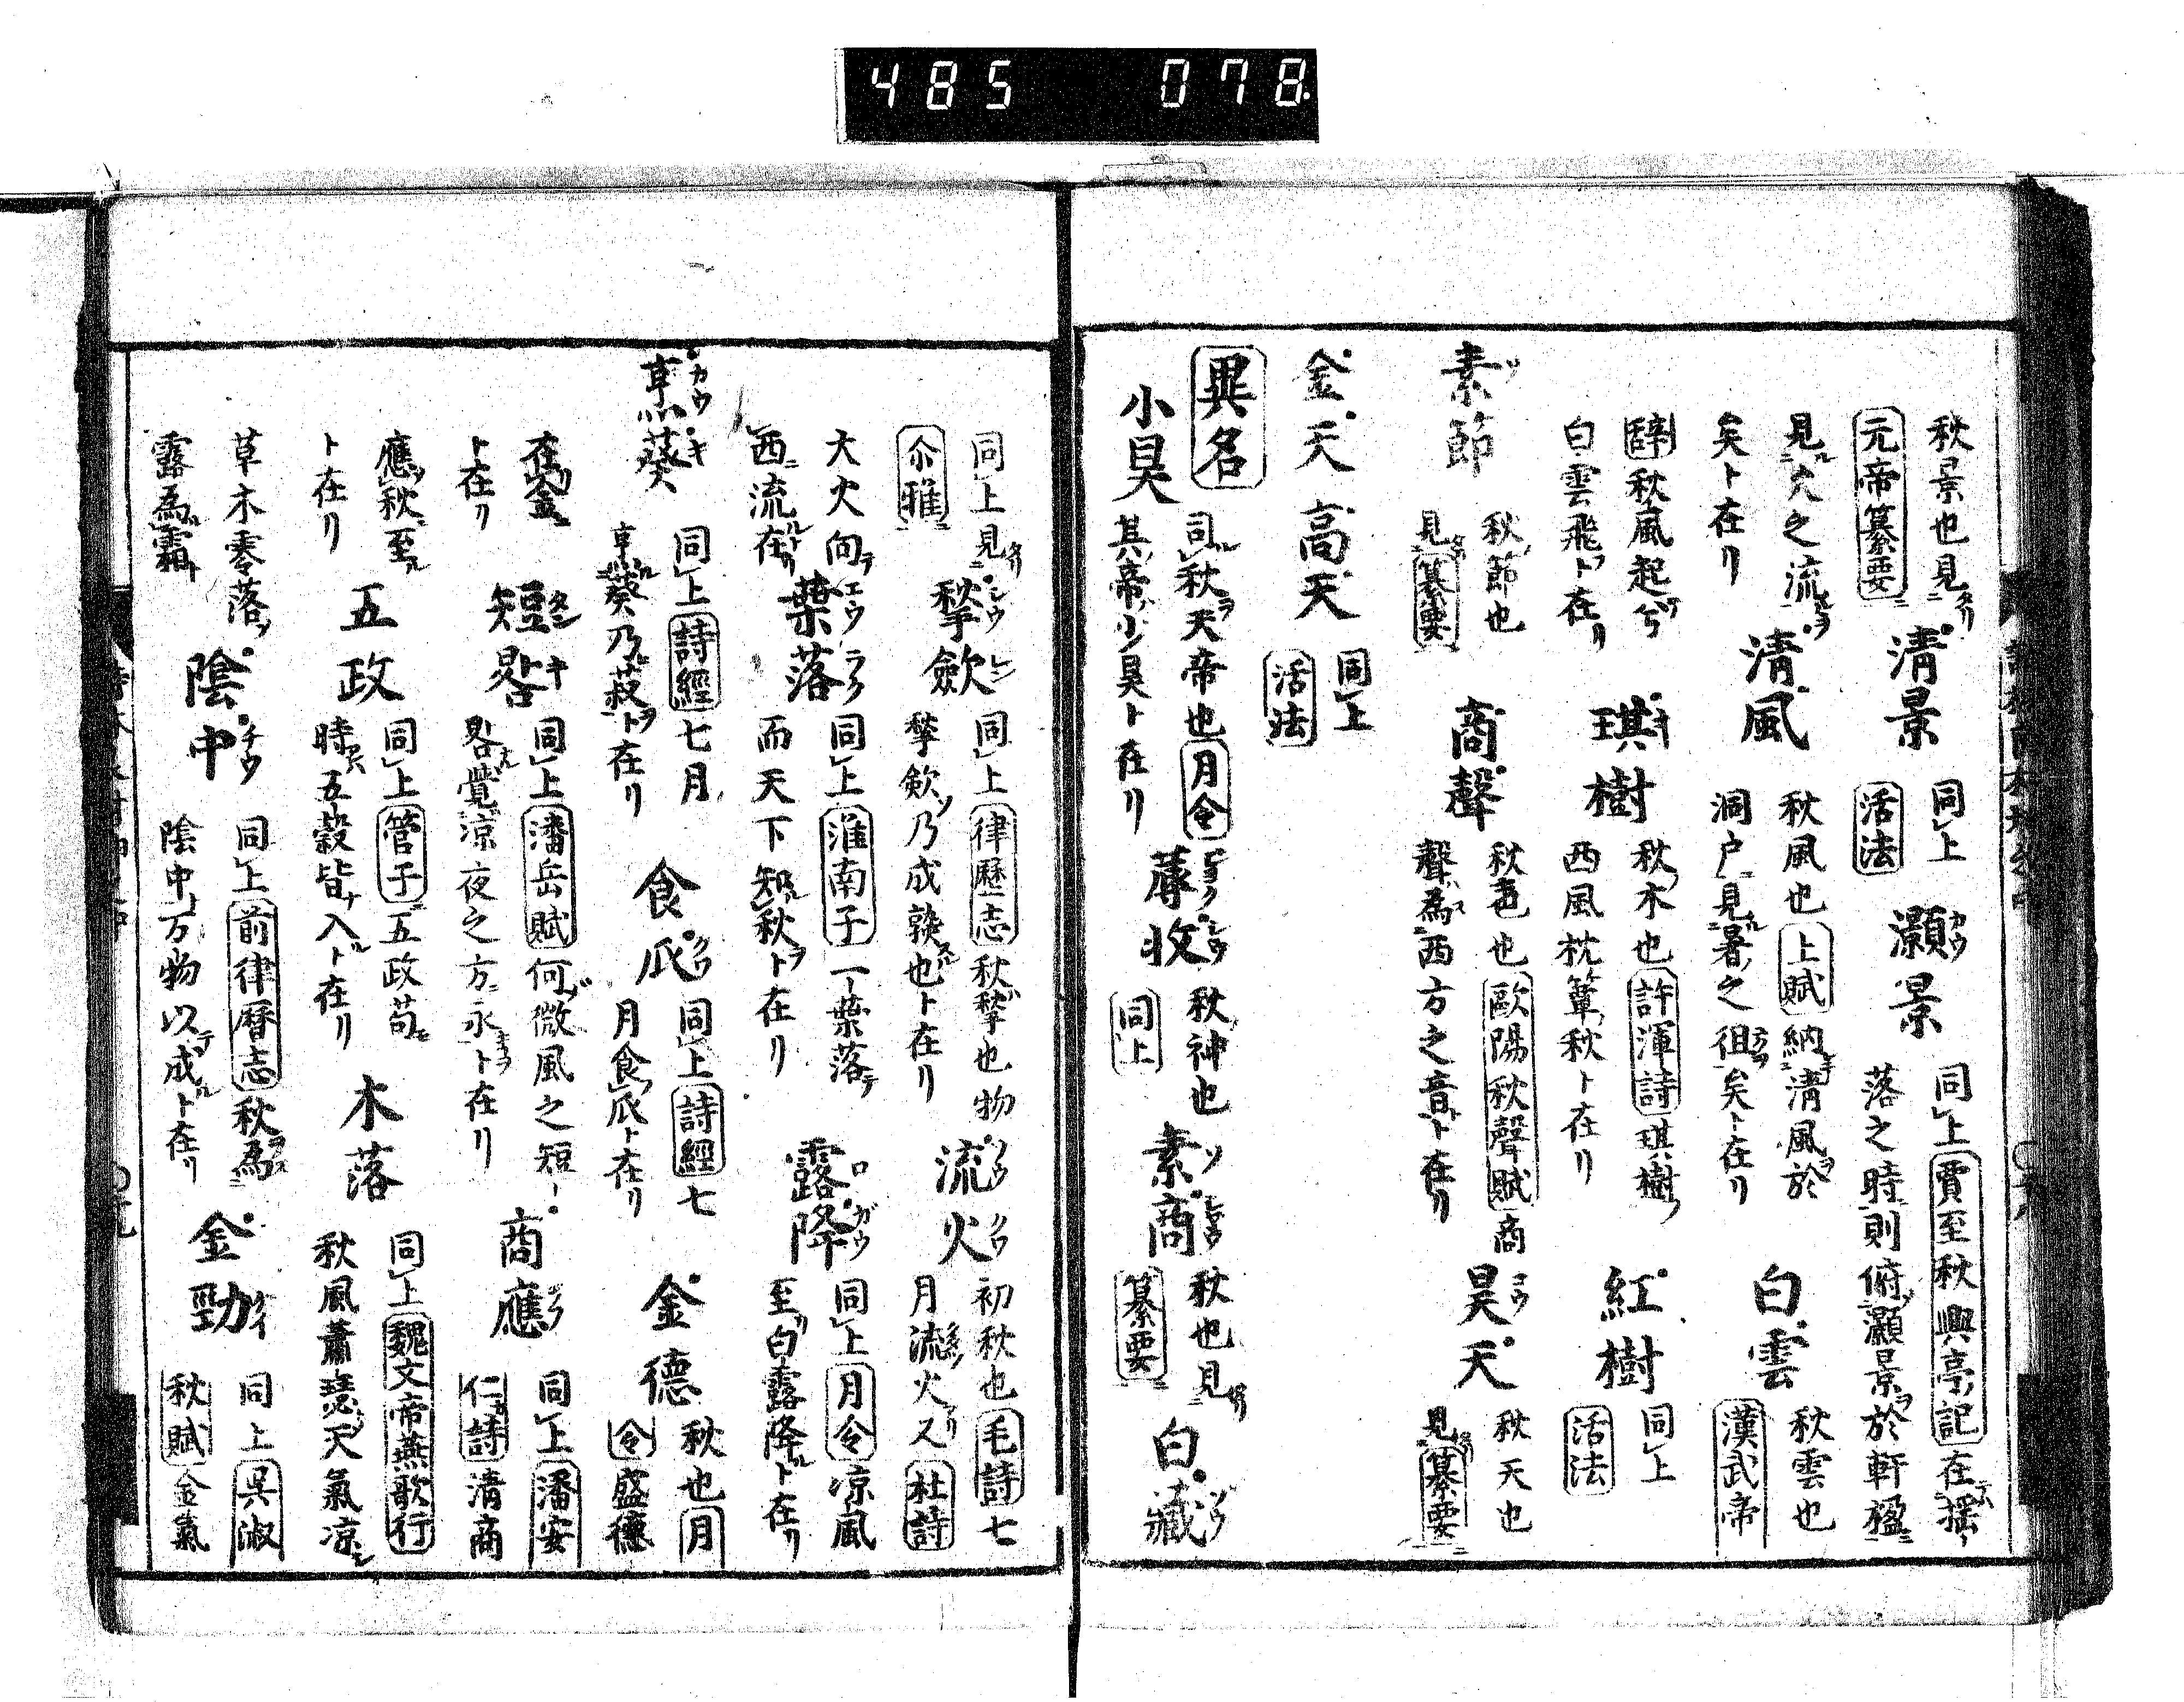 485 078.
秋景也見元帝纂要 清景 同上活法 灝景 同上賈至秋興亭記在揺落之時則俯灝景於軒楹
見火之流矣ト在リ 清風 秋風也上賦納清風於洞戸見暑之徂矣ト在リ 白雲 秋雲也漢武帝
辭秋風起兮白雲飛ト在リ 琪樹 秋木也許渾詩琪樹西風枕簟秋ト在リ 紅樹 同上活法
素節 秋節也見纂要 商聲 秋声也歐陽秋聲賦商聲為西方之音ト在リ 昊天 秋天也見纂要
金天 高天 同上活法
異名
小昊 司秋天帝也月令其帝少昊ト在リ 蓐收 秋神也同上 素商 秋也見纂要 白藏
同上見尓雅 揫歛 同上律歴志秋揫也物揫斂乃成孰也ト在リ 流火 初秋也毛詩七月流火又杜詩
大火向西流在 葉落 同上淮南子一葉落而天下知秋ト在リ 露降 同上月令凉風至白露降ト在リ
烹葵 同上詩經七月亨葵乃菽ト在リ 食瓜 同上詩經七月食瓜ト在リ 金德 秋也月令盛德
在金ト在リ 短晷 同上潘岳賦何微風之短晷覺凉夜之方永ト在リ 商應 同上潘安仁詩清商
應秋至ト在リ 五政 同上管子五政苟時五穀皆入ト在リ 木落 同上魏文帝燕歌行秋風蕭瑟天氣凉
草木零落露為霜 陰中 同上前律暦志秋為陰中万物以成ト在リ 金勁 同上呉淑秋賦金氣